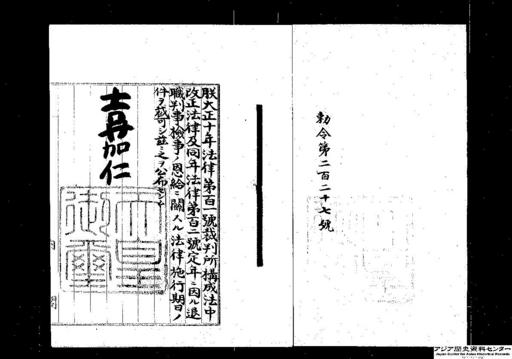 勅令第二百二十七號
朕大正十年法律第百一號裁判所構成法中
改正法律及同年法律第百二號定年ニ因ル退
職判事檢事ノ恩給ニ關スル法律施行期日ノ
件ヲ裁可シ茲ニ之ヲ公布セシム
嘉仁
天皇
御璽
アジア歴史資料センター
Japan Center for Asian Historical Records